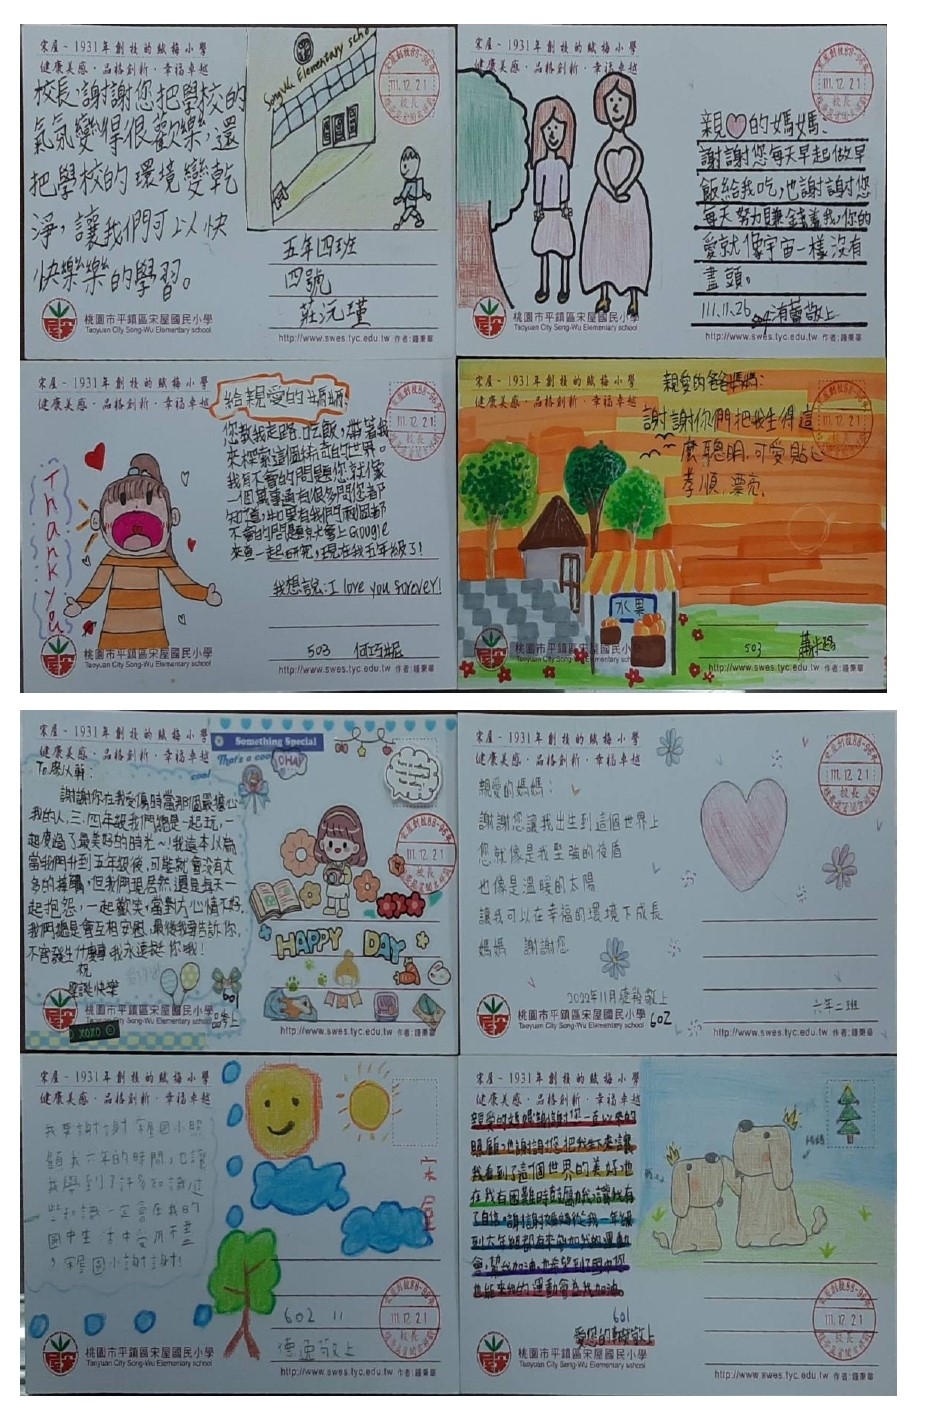 宋屋~1931年創校的緘梅小學
健康美感·品格創新·幸福卓越
校長,謝謝您把學校的
氣氛變得很歡樂,還
把學校的環境變乾
淨,讓我們可以快
快樂樂的學習。
Song Wu Elementary scho
111.12.21
校長
五年四班
四號
莊沅瑾
桃園市平鎮區宋屋國民小學
Taoyuan City Song-Wu Elementary school
http://www.swes.tyc.edu.tw 作者:鍾秉華
宋屋~1931年創校的緘梅小學
健康美感·品格創新·幸福卓越
111.12.21
校長
親的媽媽:
謝謝您每天早起做早
飯給我吃,也謝謝您
每天努力賺錢養我,你的
愛就像宇宙一樣沒有
盡頭。
111.11.26 敬上
桃園市平鎮區宋屋國民小學
Taoyuan City Song-Wu Elementary school
http://www.swes.tyc.edu.tw 作者:鍾秉華
宋屋~1931年創校的緘梅小學
健康美感·品格創新·幸福卓越
111.12.21
校長
給親愛的媽媽:
您教我走路、吃飯,帶著我
來探索這個新奇的世界。
我有不會的問題您就像
一個萬事通有很多問您都
知道,如果有我們兩個都
不會的問題就會上Google
來查一起研究,現在我五年級了!
我想說:I love you forever!
Thank you
503
桃園市平鎮區宋屋國民小學
Taoyuan City Song-Wu Elementary school
http://www.swes.tyc.edu.tw 作者:鍾秉華
宋屋~1931年創校的緘梅小學
健康美感·品格創新·幸福卓越
111.12.21
校長
親愛的爸爸媽媽:
謝謝你們把我生得這
麼聰明、可愛、貼心
孝順、漂亮。
水果
503
桃園市平鎮區宋屋國民小學
Taoyuan City Song-Wu Elementary school
http://www.swes.tyc.edu.tw 作者:鍾秉華
宋屋~1931年創校的緘梅小學
健康美感·品格創新·幸福卓越
Something Special
That's a coo
cool
OHAY
111.12.21
校長
謝謝你在我受傷時當那個最擔心
我的人,三、四年級我們總是一起玩,一
起度過了最美好的時光~!我這本以為
當我們升到五年級後,可能就會沒有太
多的接觸,但我們現居然還是每天一
起抱怨,一起歡笑,當對方心情不好,
我們總是會互相安慰,最後我要告訴你,
不管發生什麼事,我永遠挺你哦!
祝
聖誕快樂
HAPPY DAY
601
XOXO
桃園市平鎮區宋屋國民小學
Taoyuan City Song-Wu Elementary school
http://www.swes.tyc.edu.tw 作者:鍾秉華
宋屋~1931年創校的緘梅小學
健康美感·品格創新·幸福卓越
111.12.21
校長
親愛的媽媽:
謝謝您讓我出生到這個世界上
您就像是我堅強的後盾
也像是溫暖的太陽
讓我可以在幸福的環境下成長
媽媽 謝謝您
2022年11月 敬上
602
六年二班
桃園市平鎮區宋屋國民小學
Taoyuan City Song-Wu Elementary school
http://www.swes.tyc.edu.tw 作者:鍾秉華
宋屋~1931年創校的緘梅小學
健康美感·品格創新·幸福卓越
我要謝謝宋屋國小照
顧我六年的時間,也讓
我學到了許多知識這
些知識一定會在我的
國中生活中受用不盡
,宋屋國小謝謝!
宋屋
111.12.21
校長
602 11
德 敬上
桃園市平鎮區宋屋國民小學
Taoyuan City Song-Wu Elementary school
http://www.swes.tyc.edu.tw 作者:鍾秉華
宋屋~1931年創校的緘梅小學
健康美感·品格創新·幸福卓越
親愛的媽媽謝謝你一直以來的
照顧,也謝謝您把我生下來讓
我看到了這個世界的美好,也
在我有困難時鼓勵我,讓我有
了自信,謝謝媽媽從我一年級
到六年級都有來參加我的運動
會,幫我加油,也希望到了國中您
也能來我的運動會為我加油。
媽媽
601
愛您的 敬上
111.12.21
校長
桃園市平鎮區宋屋國民小學
Taoyuan City Song-Wu Elementary school
http://www.swes.tyc.edu.tw 作者:鍾秉華